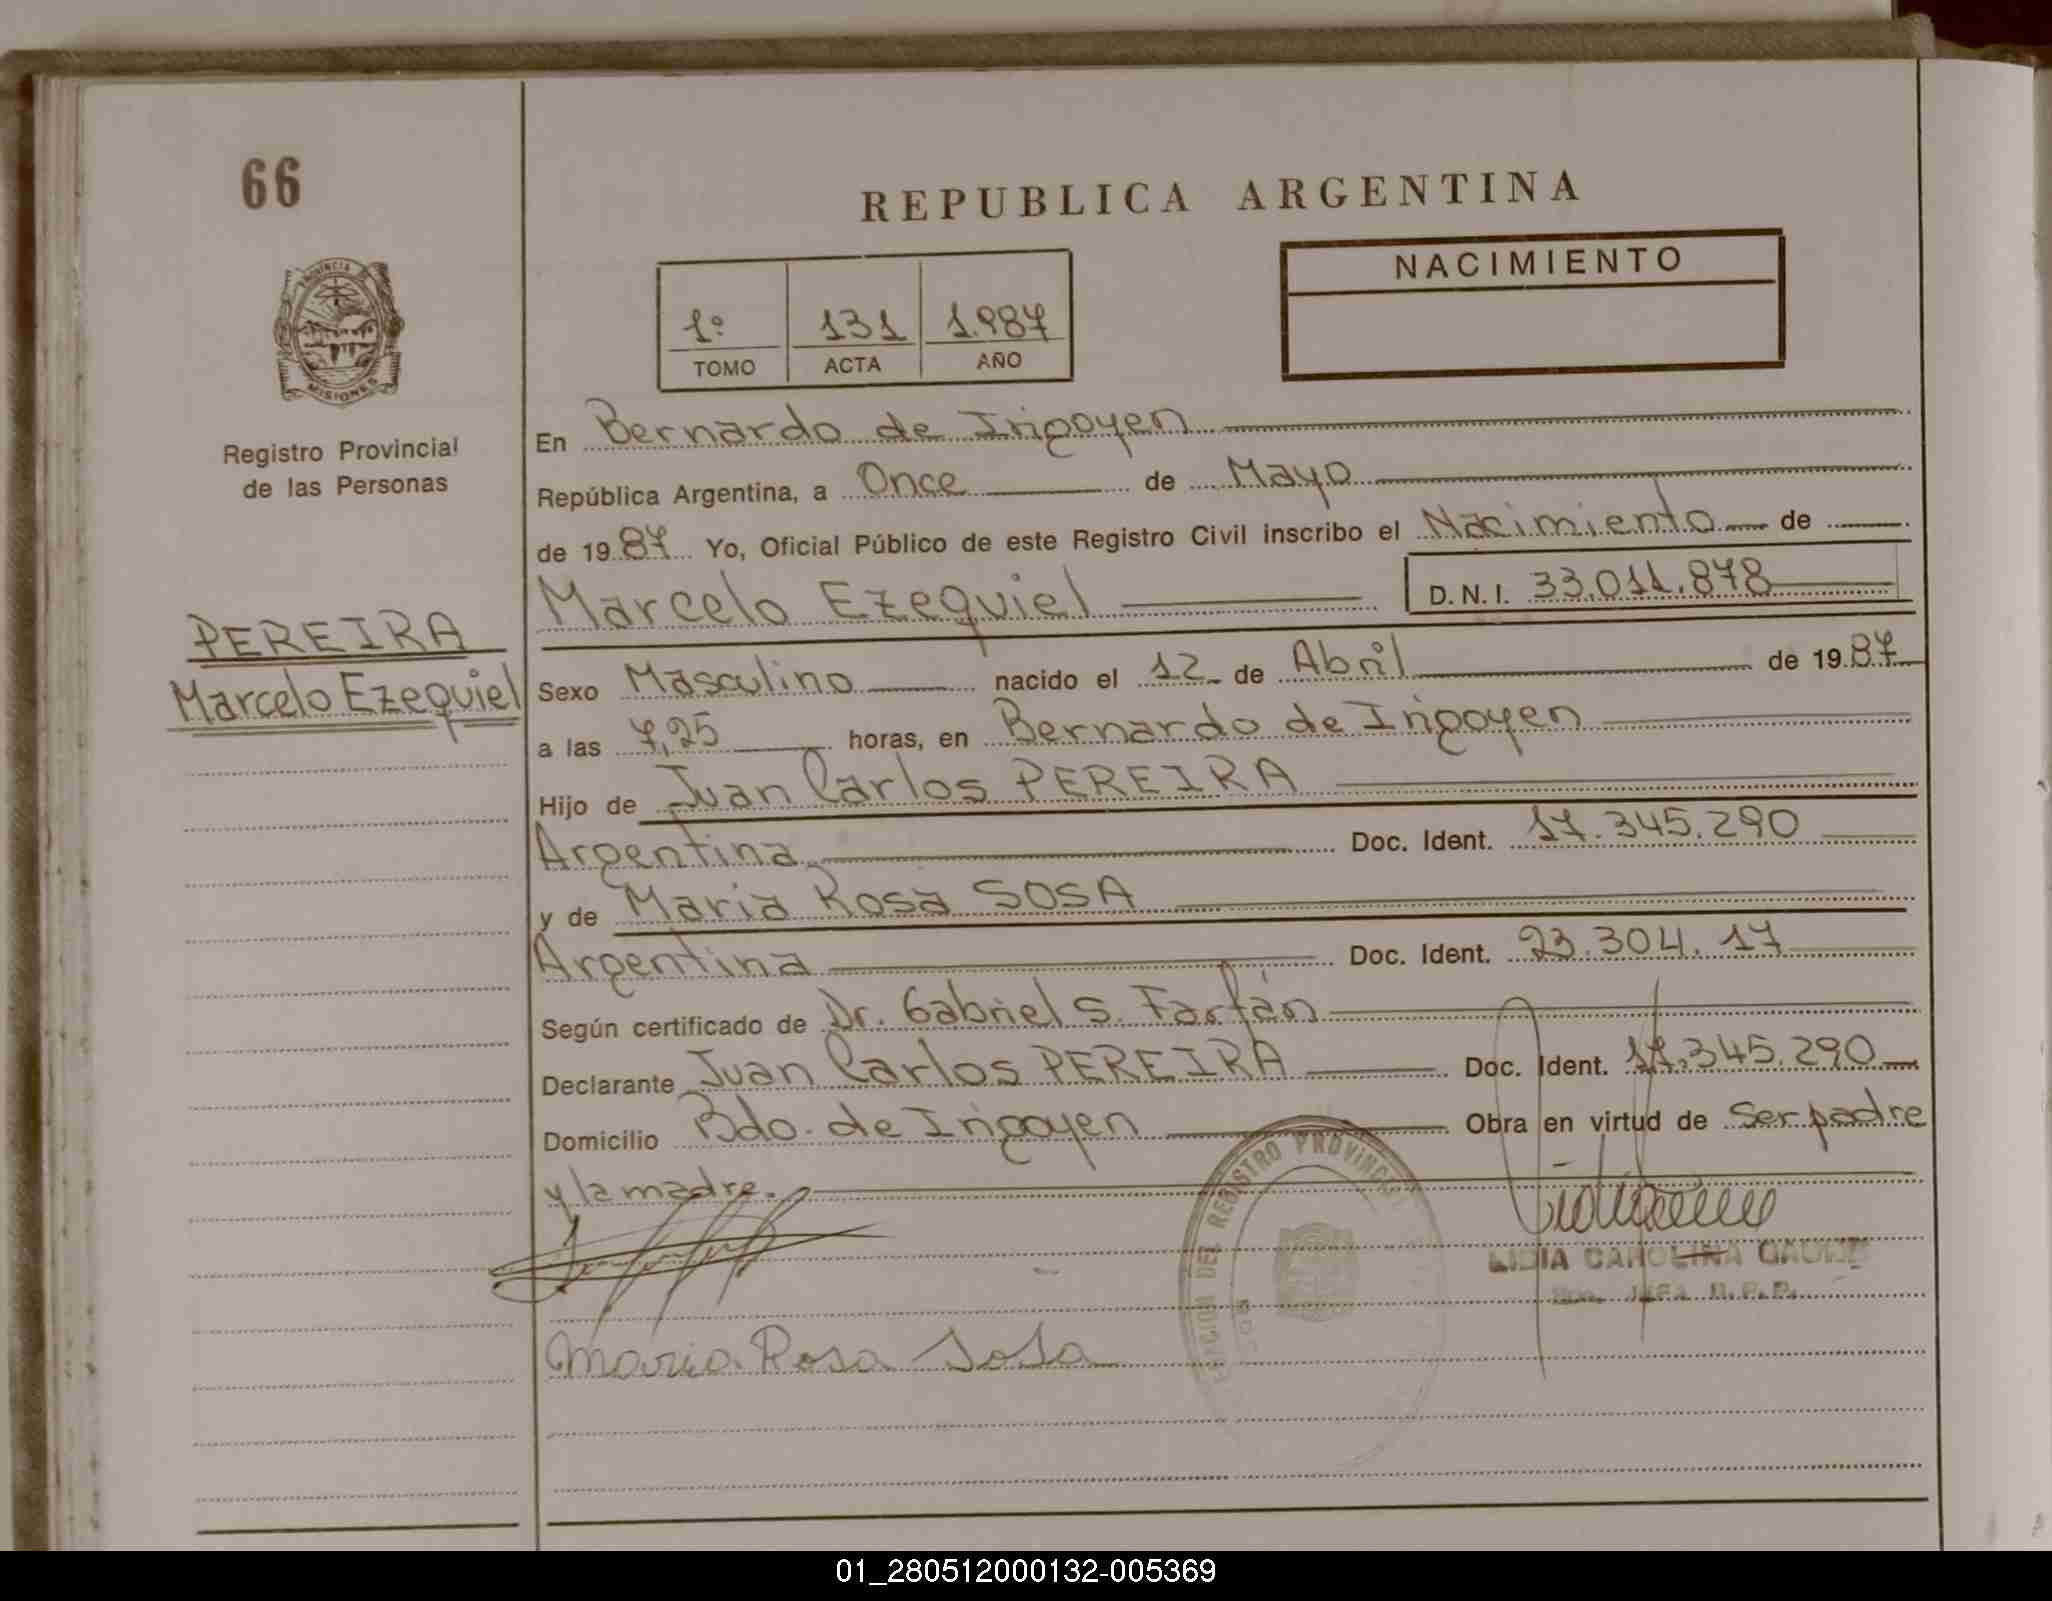 66
REPUBLICA ARGENTINA
NACIMIENTO
1º 131 1.987
TOMO ACTA AÑO
PROVINCIA DE MISIONES
Registro Provincial
de las Personas
PEREIRA
Marcelo Ezequiel
En Bernardo de Irigoyen
República Argentina, a Once de Mayo
de 1987 Yo, Oficial Público de este Registro Civil inscribo el Nacimiento de
Marcelo Ezequiel D.N.I. 33.011.878
Sexo Masculino nacido el 12 de Abril de 1987
a las 7,25 horas, en Bernardo de Irigoyen
Hijo de Juan Carlos PEREIRA
Argentina Doc. Ident. 17.345.290
y de Maria Rosa SOSA
Argentina Doc. Ident. 23.304.17
Según certificado de Dr. Gabriel S. Farfán
Declarante Juan Carlos PEREIRA Doc. Ident. 17.345.290
Domicilio Bdo. de Irigoyen Obra en virtud de Ser padre
y la madre.
DEL REGISTRO PROVINCIAL
LIDIA CAROLINA
JEFA R.P.P.
Maria Rosa Sosa
01_280512000132-005369